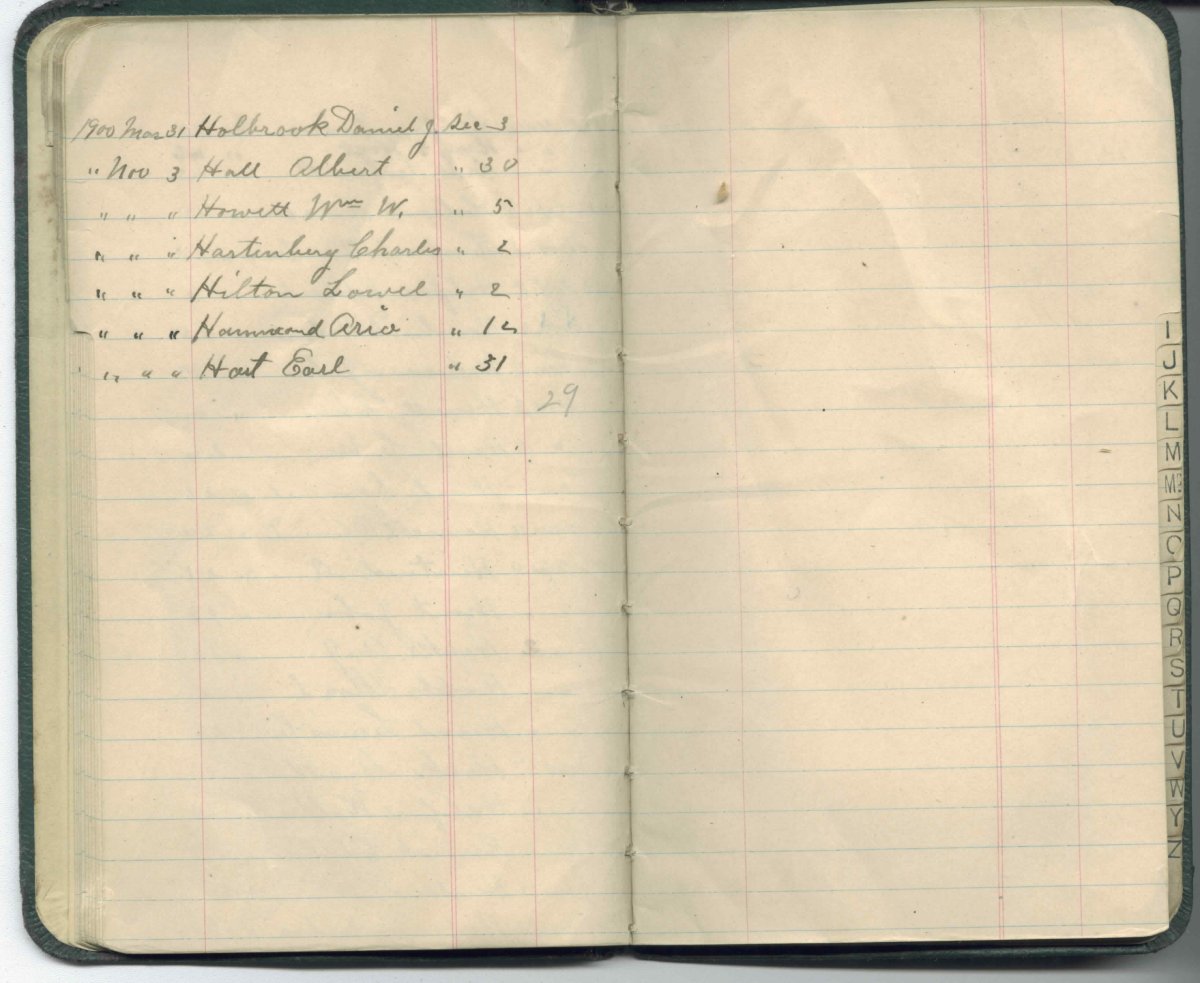 1900 Mar 31 Holbrook Daniel J. Sec 3
" Nov 3 Hall Albert " 30
" " " Howett Wm W. " 5
" " " Hartenberg Charles " 2
" " " Hilton Lowell " 2
" " " Hammond Ario " 12
" " " Hart Earl " 31
29
I
J
K
L
M
Mc
N
O
P
Q
R
S
T
U
V
W
Y
Z